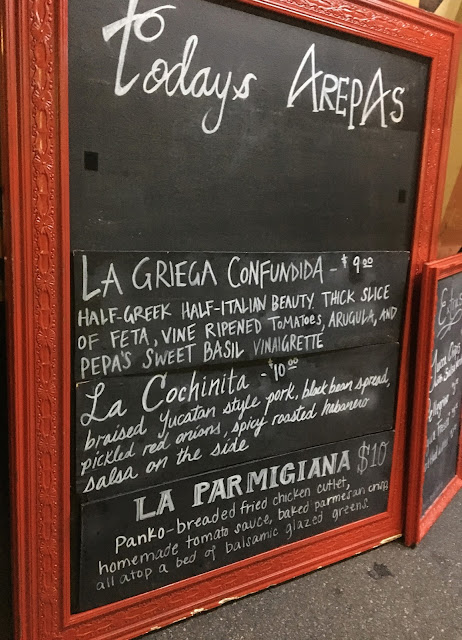 todays AREPAS
LA GRIEGA CONFUNDIDA - $9.00
HALF-GREEK HALF-ITALIAN BEAUTY. THICK SLICE
OF FETA, VINE RIPENED TOMATOES, ARUGULA, AND
PEPA'S SWEET BASIL VINAIGRETTE
La Cochinita - $10.00
braised Yucatan style pork, black bean spread,
pickled red onions, spicy roasted habanero
salsa on the side
LA PARMIGIANA $10
Panko-breaded fried chicken cutlet,
homemade tomato sauce, baked parmesan crisp
all atop a bed of balsamic glazed greens.